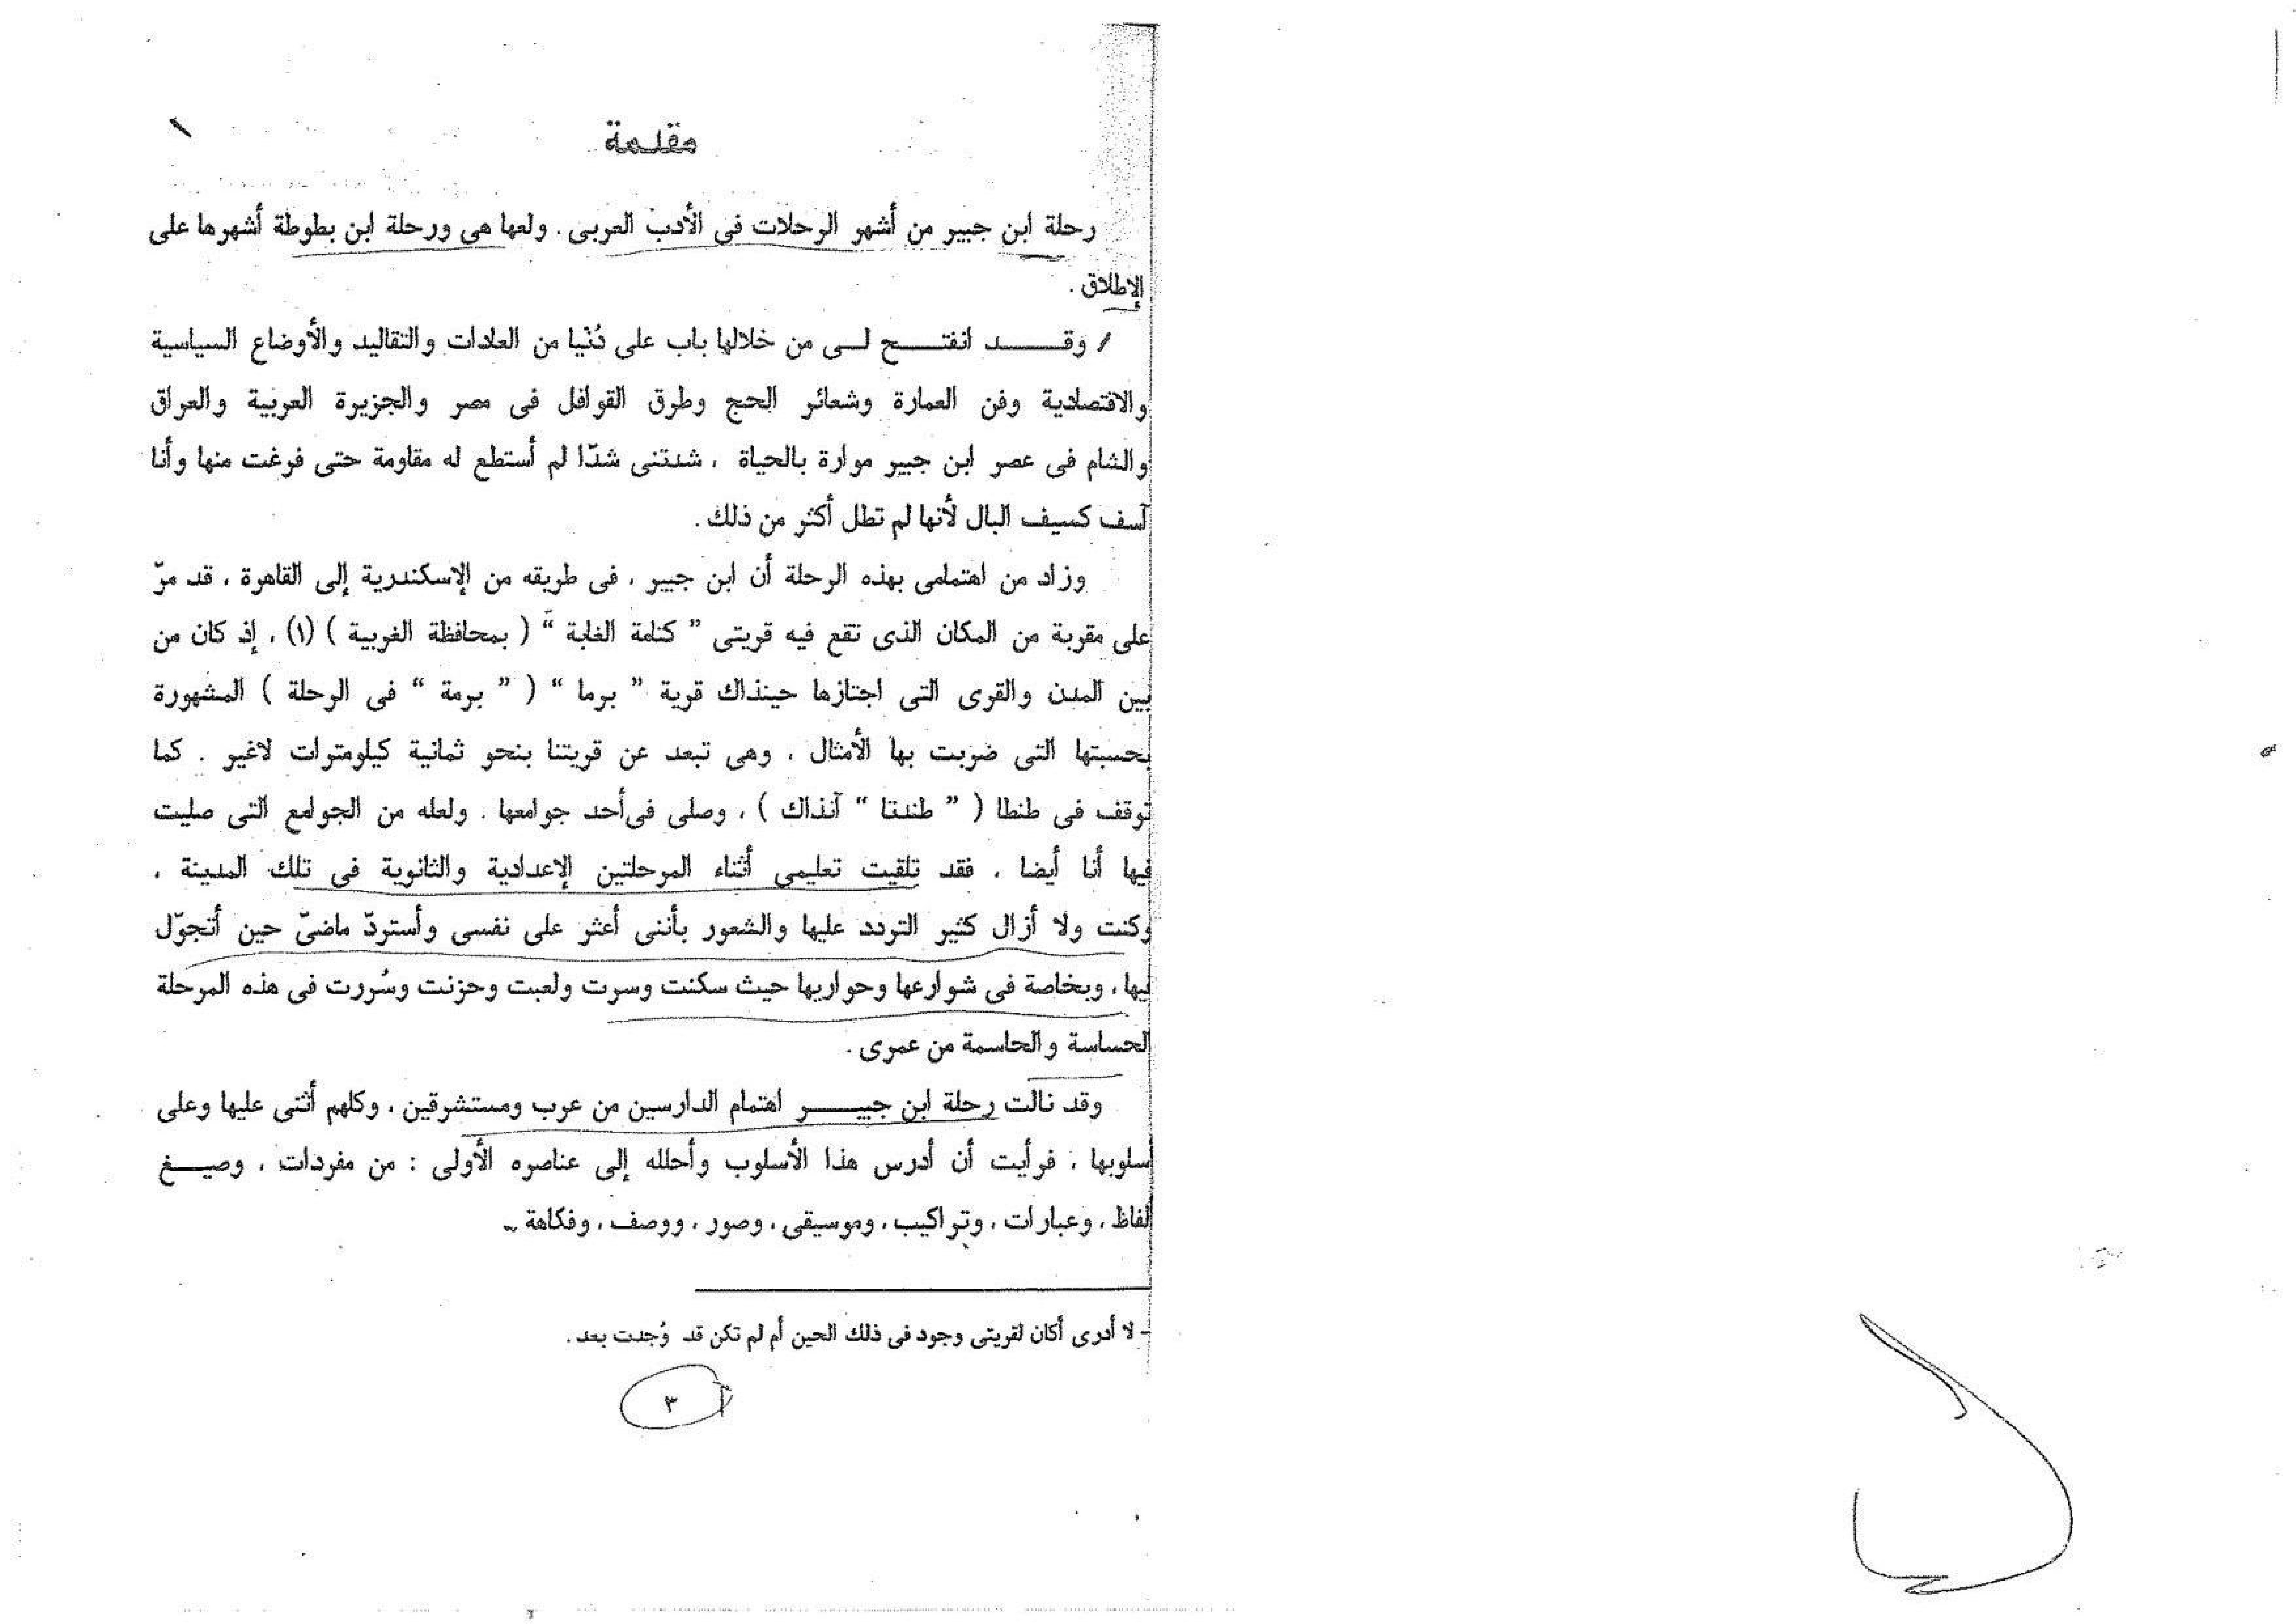 مقدمة
رحلة ابن جبير من أشهر الرحلات فى الأدب العربى . ولعها هى ورحلة ابن بطوطة أشهرها على
الإطلاق .
وقـــــد انفتـــــح لـــى من خلالها باب على دُنْيا من العادات والتقاليد والأوضاع السياسية
والاقتصادية وفن العمارة وشعائر الحج وطرق القوافل فى مصر والجزيرة العربية والعراق
والشام فى عصر ابن جبير موارة بالحياة ، شدتنى شدّا لم أستطع له مقاومة حتى فرغت منها وأنا
آسف كسيف البال لأنها لم تطل أكثر من ذلك .
وزاد من اهتمامى بهذه الرحلة أن ابن جبير ، فى طريقه من الإسكندرية إلى القاهرة ، قد مرّ
على مقربة من المكان الذى تقع فيه قريتى " كتامة الغابة " ( بمحافظة الغربية ) (١) ، إذ كان من
بين المدن والقرى التى اجتازها حينذاك قرية " برما " ( " برمة " فى الرحلة ) المشهورة
بحسبتها التى ضربت بها الأمثال ، وهى تبعد عن قريتنا بنحو ثمانية كيلومترات لاغير . كما
توقف فى طنطا ( " طندتا " آنذاك ) ، وصلى فى أحد جوامعها . ولعله من الجوامع التى صليت
فيها أنا أيضا ، فقد تلقيت تعليمى أثناء المرحلتين الإعدادية والثانوية فى تلك المدينة ،
وكنت ولا أزال كثير التردد عليها والشعور بأننى أعثر على نفسى وأستردّ ماضىّ حين أتجوّل
فيها ، وبخاصة فى شوارعها وحواريها حيث سكنت وسرت ولعبت وحزنت وسُررت فى هذه المرحلة
الحساسة والحاسمة من عمرى .
وقد نالت رحلة ابن جبيـــــر اهتمام الدارسين من عرب ومستشرقين ، وكلهم أثنى عليها وعلى
أسلوبها ، فرأيت أن أدرس هذا الأسلوب وأحلله إلى عناصره الأولى : من مفردات ، وصيـــغ
ألفاظ ، وعبارات ، وتراكيب ، وموسيقى ، وصور ، ووصف ، وفكاهة ..
- لا أدرى أكان لقريتى وجود فى ذلك الحين أم لم تكن قد وُجدت بعد .
٣